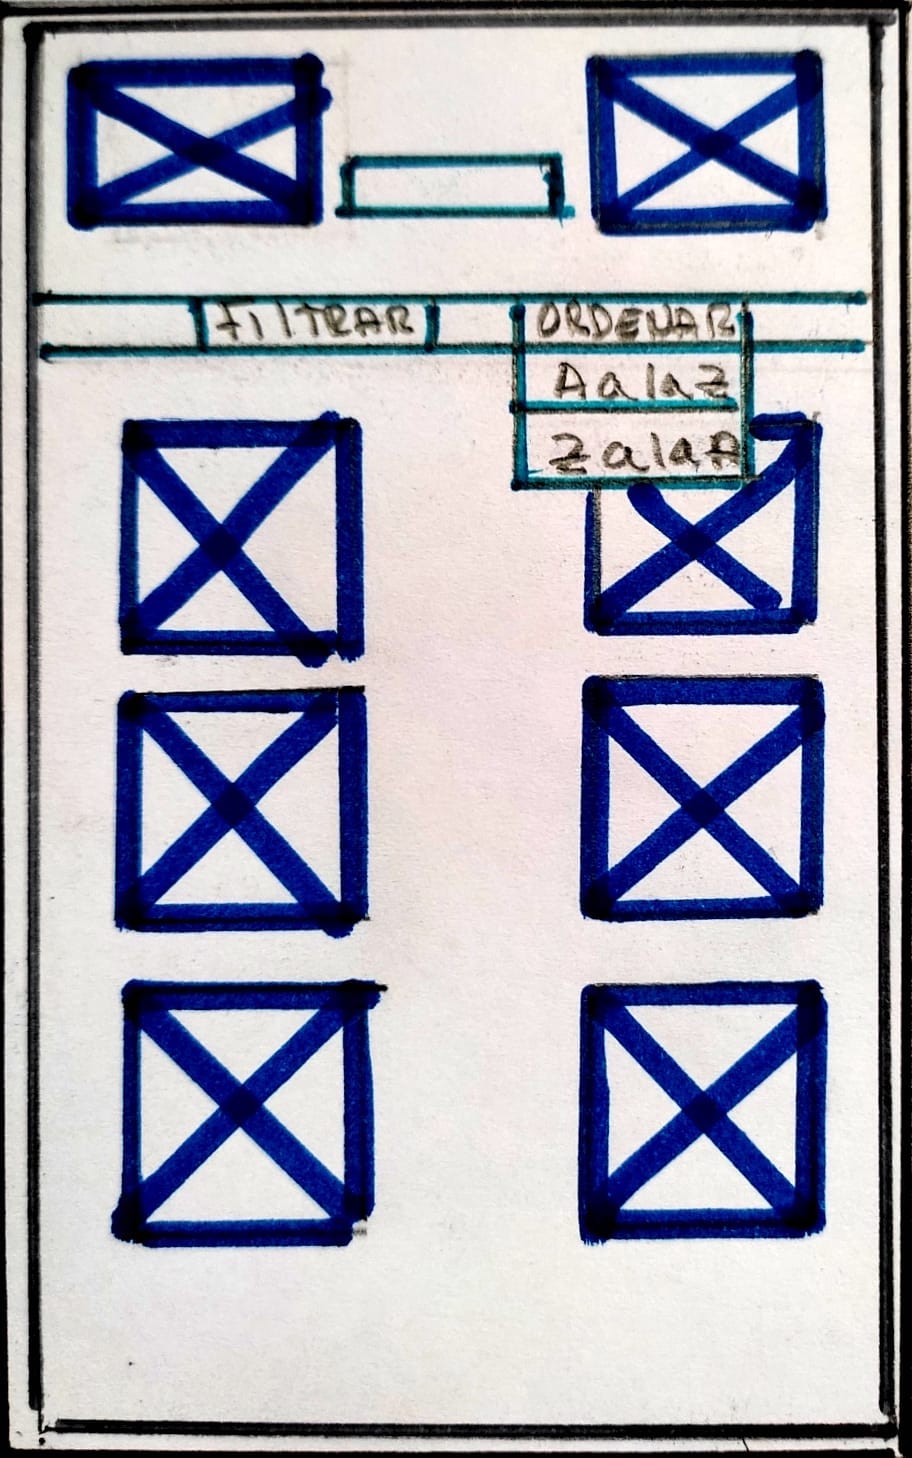 FilTRAR
ORDENAR
A a la Z
Z a la A